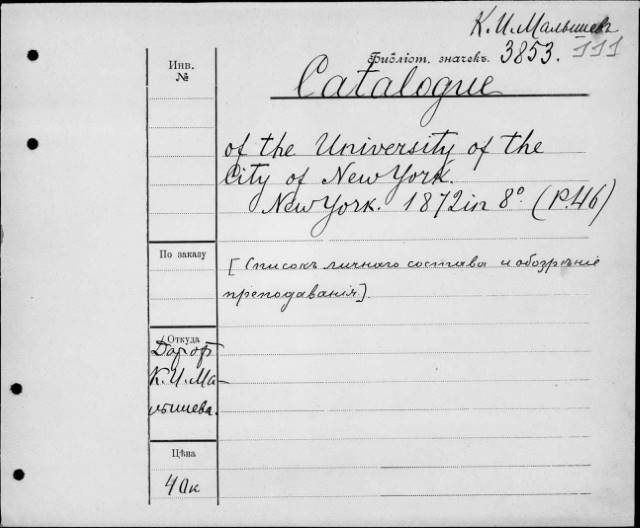 К. И. Малышевъ
Библіот. значекъ. 3853. 111
Инв.
№
Catalogue
of the University of the
City of New York.
New York. 1872 in 8º (P.46)
По заказу
[Списокъ личнаго состава и обозрѣніе
преподаванія].
Откуда
Дар от
К. И. Ма-
лышева.
Цѣна
40к